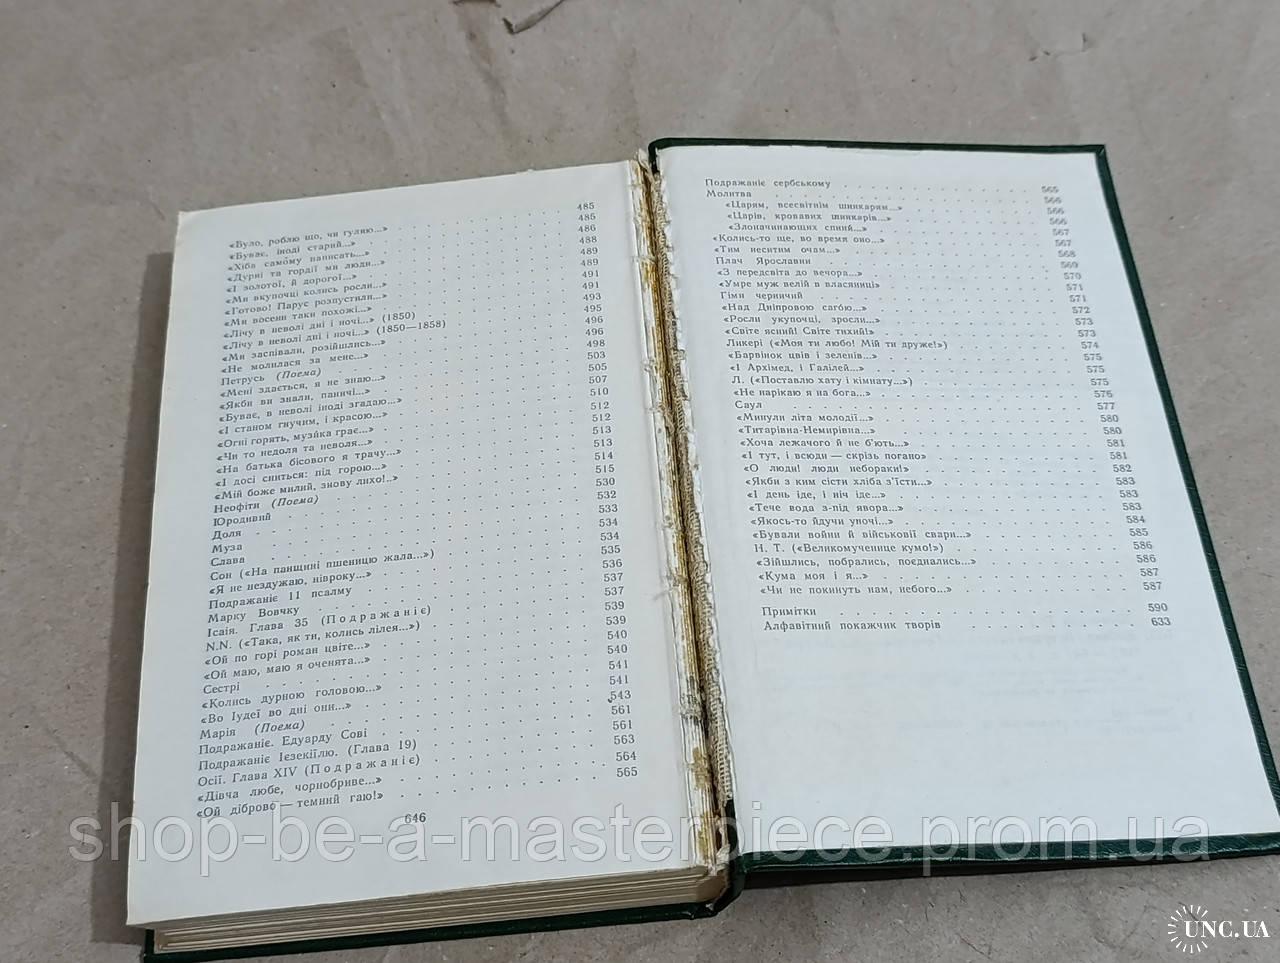 «Було, роблю що, чи гуляю...» 485
«Буває, іноді старий...» 485
«Хіба самому написать...» 486
«Дурні та гордії ми люди...» 488
«І золотої, й дорогої...» 489
«Ми вкупочці колись росли...» 489
«Готово! Парус розпустили...» 491
«Ми восени таки похожі...» 491
«Лічу в неволі дні і ночі...» (1850) 493
«Лічу в неволі дні і ночі...» (1850—1858) 495
«Ми заспівали, розійшлись...» 496
«Не молилася за мене...» 496
Петрусь (Поема) 498
«Мені здається, я не знаю...» 503
«Якби ви знали, паничі...» 505
«Буває, в неволі іноді згадаю...» 507
«І станом гнучим, і красою...» 510
«Огні горять, музика грає...» 512
«Чи то недоля та неволя...» 512
«На батька бісового я трачу...» 513
«І досі сниться: під горою...» 513
«Мій боже милий, знову лихо!..» 514
Неофіти (Поема) 515
Юродивий 530
Доля 532
Муза 533
Слава 534
Сон («На панщині пшеницю жала...») 534
«Я не нездужаю, нівроку...» 535
Подражаніє 11 псалму 536
Марку Вовчку 537
Ісаія. Глава 35 (Подражаніє) 537
N.N. («Така, як ти, колись лілея...») 539
«Ой по горі роман цвіте...» 539
«Ой маю, маю я оченята...» 540
Сестрі 540
«Колись дурною головою...» 541
«Во Іудеї во дні они...» 541
Марія (Поема) 543
Подражаніє. Едуарду Сові 561
Подражаніє Ієзекіїлю. (Глава 19) 561
Осії. Глава XIV (Подражаніє) 563
«Дівча любе, чорнобриве...» 564
«Ой діброво — темний гаю!» 565
646
Подражаніє сербському 565
Молитва 566
«Царям, всесвітнім шинкарям...» 566
«Царів, кровавих шинкарів...» 566
«Злоначинающих спиний...» 567
«Колись-то ще, во время оно...» 567
«Тим неситим очам...» 568
Плач Ярославни 569
«З передсвіта до вечора...» 570
«Умре муж велій в власяниці» 571
Гімн черничий 571
«Над Дніпровою сагою...» 572
«Росли укупочці, зросли...» 573
«Світе ясний! Світе тихий!» 573
Ликері («Моя ти любо! Мій ти друже!») 574
«Барвінок цвів і зеленів...» 575
«І Архімед, і Галілей...» 575
Л. («Поставлю хату і кімнату...») 575
«Не нарікаю я на бога...» 576
Саул 577
«Минули літа молодії...» 580
«Титарівна-Немирівна...» 580
«Хоча лежачого й не б'ють...» 581
«І тут, і всюди — скрізь погано» 581
«О люди! люди небораки!» 582
«Якби з ким сісти хліба з'їсти...» 583
«І день іде, і ніч іде...» 583
«Тече вода з-під явора...» 583
«Якось-то йдучи уночі...» 584
«Бували войни й військовії свари...» 585
Н. Т. («Великомученице кумо!») 586
«Зійшлись, побрались, поєднались...» 586
«Кума моя і я...» 587
«Чи не покинуть нам, небого...» 587
Примітки 590
Алфавітний покажчик творів 633
shop-be-a-masterpiece.prom.ua
UNC.UA